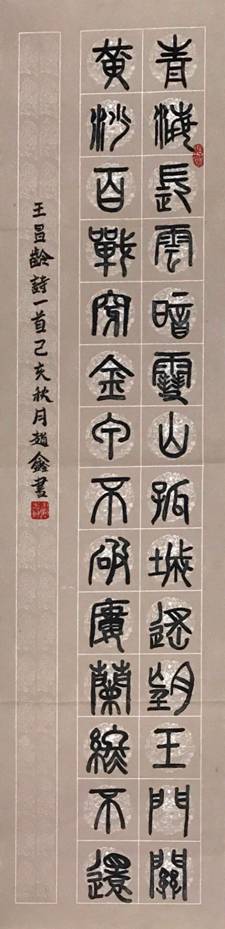 青海長雲暗雪山孤城遥望玉門關
黃沙百戰穿金甲不破樓蘭終不還
王昌齡詩一首己亥秋月趙鑫書